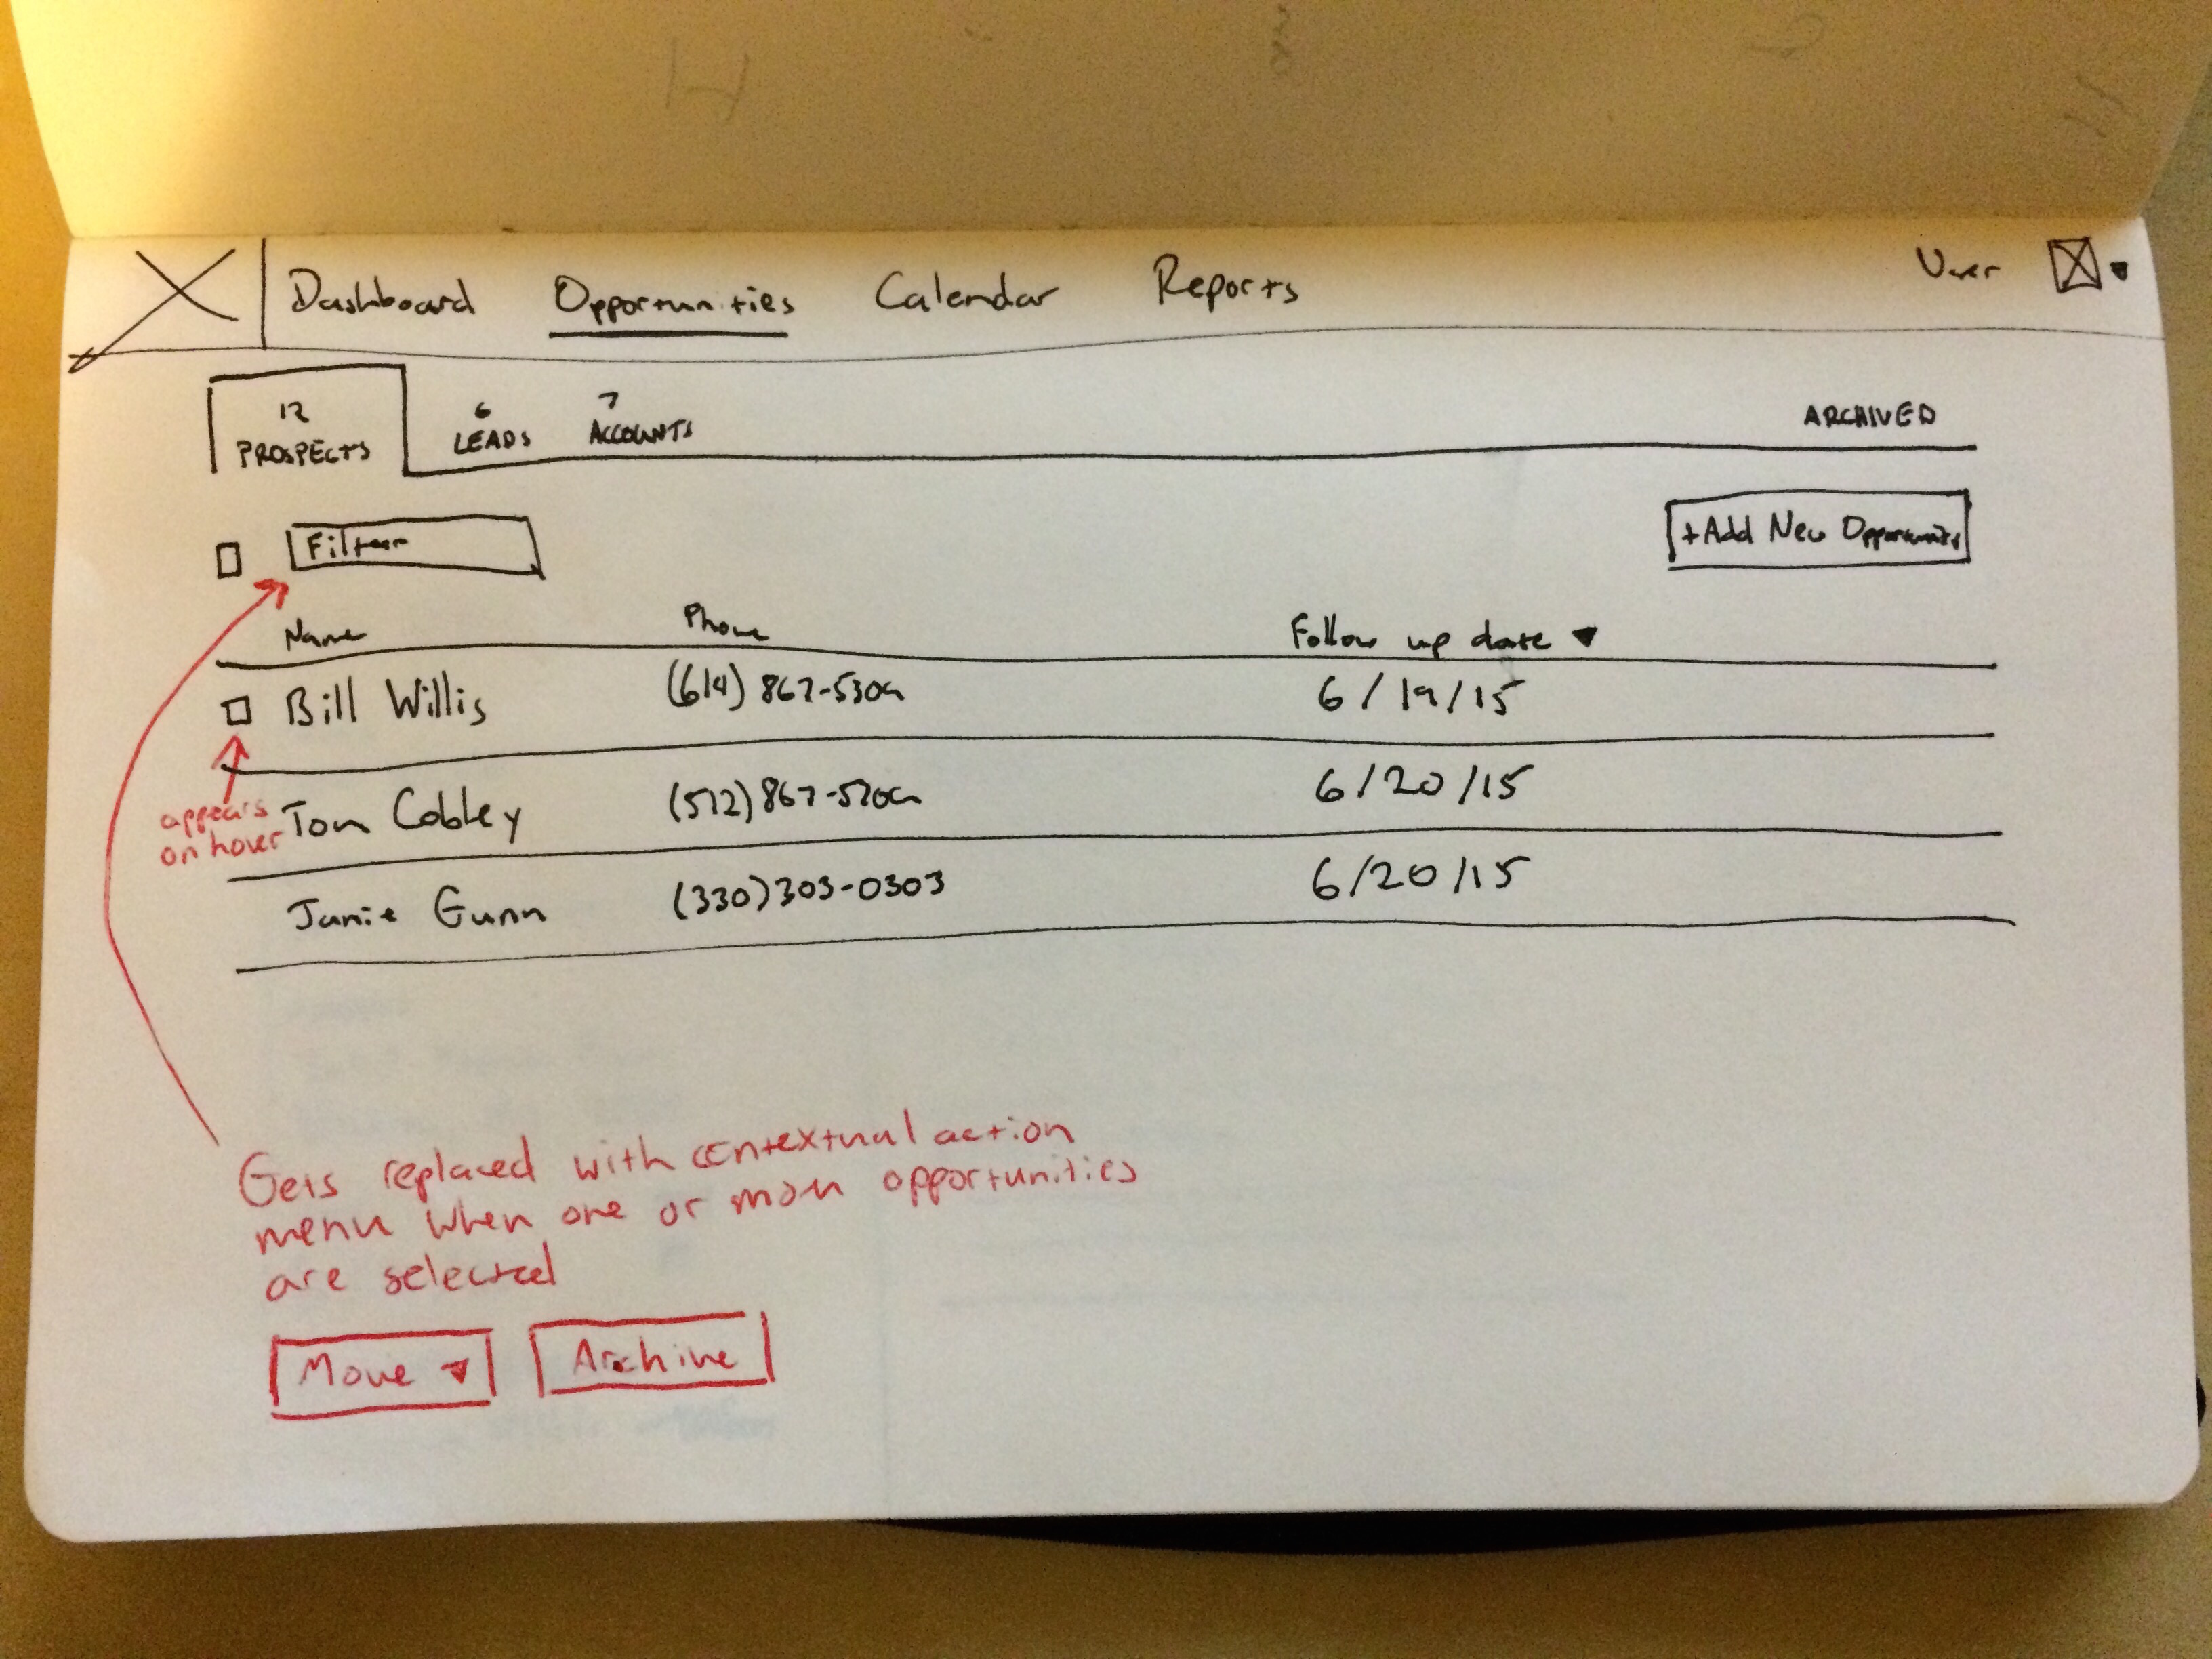 Dashboard Opportunities Calendar Reports User
12 PROSPECTS
6 LEADS
7 ACCOUNTS
ARCHIVED
Filter
+Add New Opportunity
Name Phone Follow up date
Bill Willis (614) 867-5309 6/19/15
appears
on hover
Tom Cobley (512) 867-5309 6/20/15
Janie Gunn (330) 303-0303 6/20/15
Gets replaced with contextual action
menu when one or more opportunities
are selected
Move
Archive